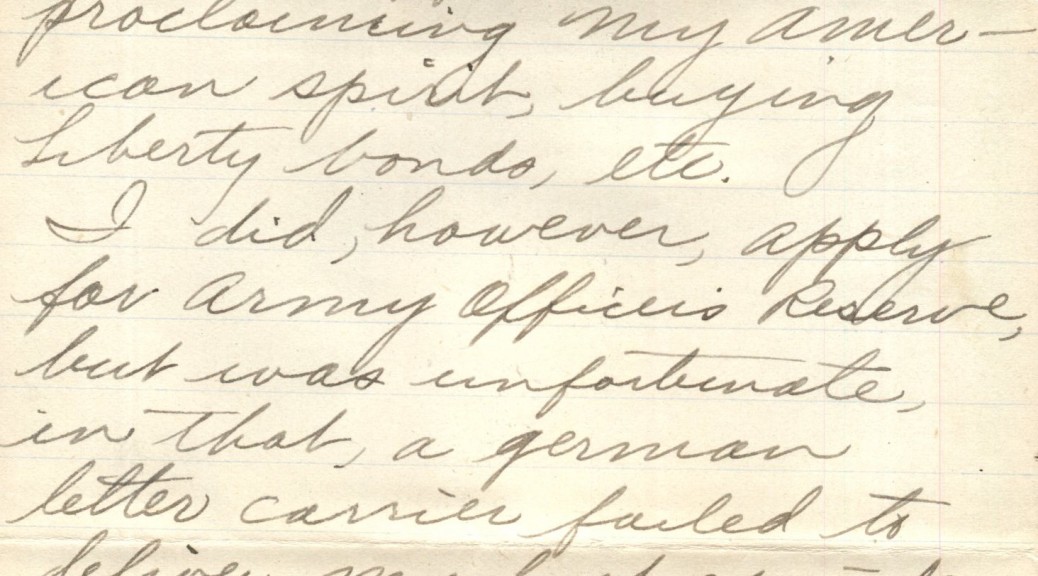 proclaiming my Amer-
ican spirit, buying
Liberty bonds, etc.
I did, however, apply
for Army Officers Reserve,
but was unfortunate,
in that, a german
letter carrier failed to
deliver my